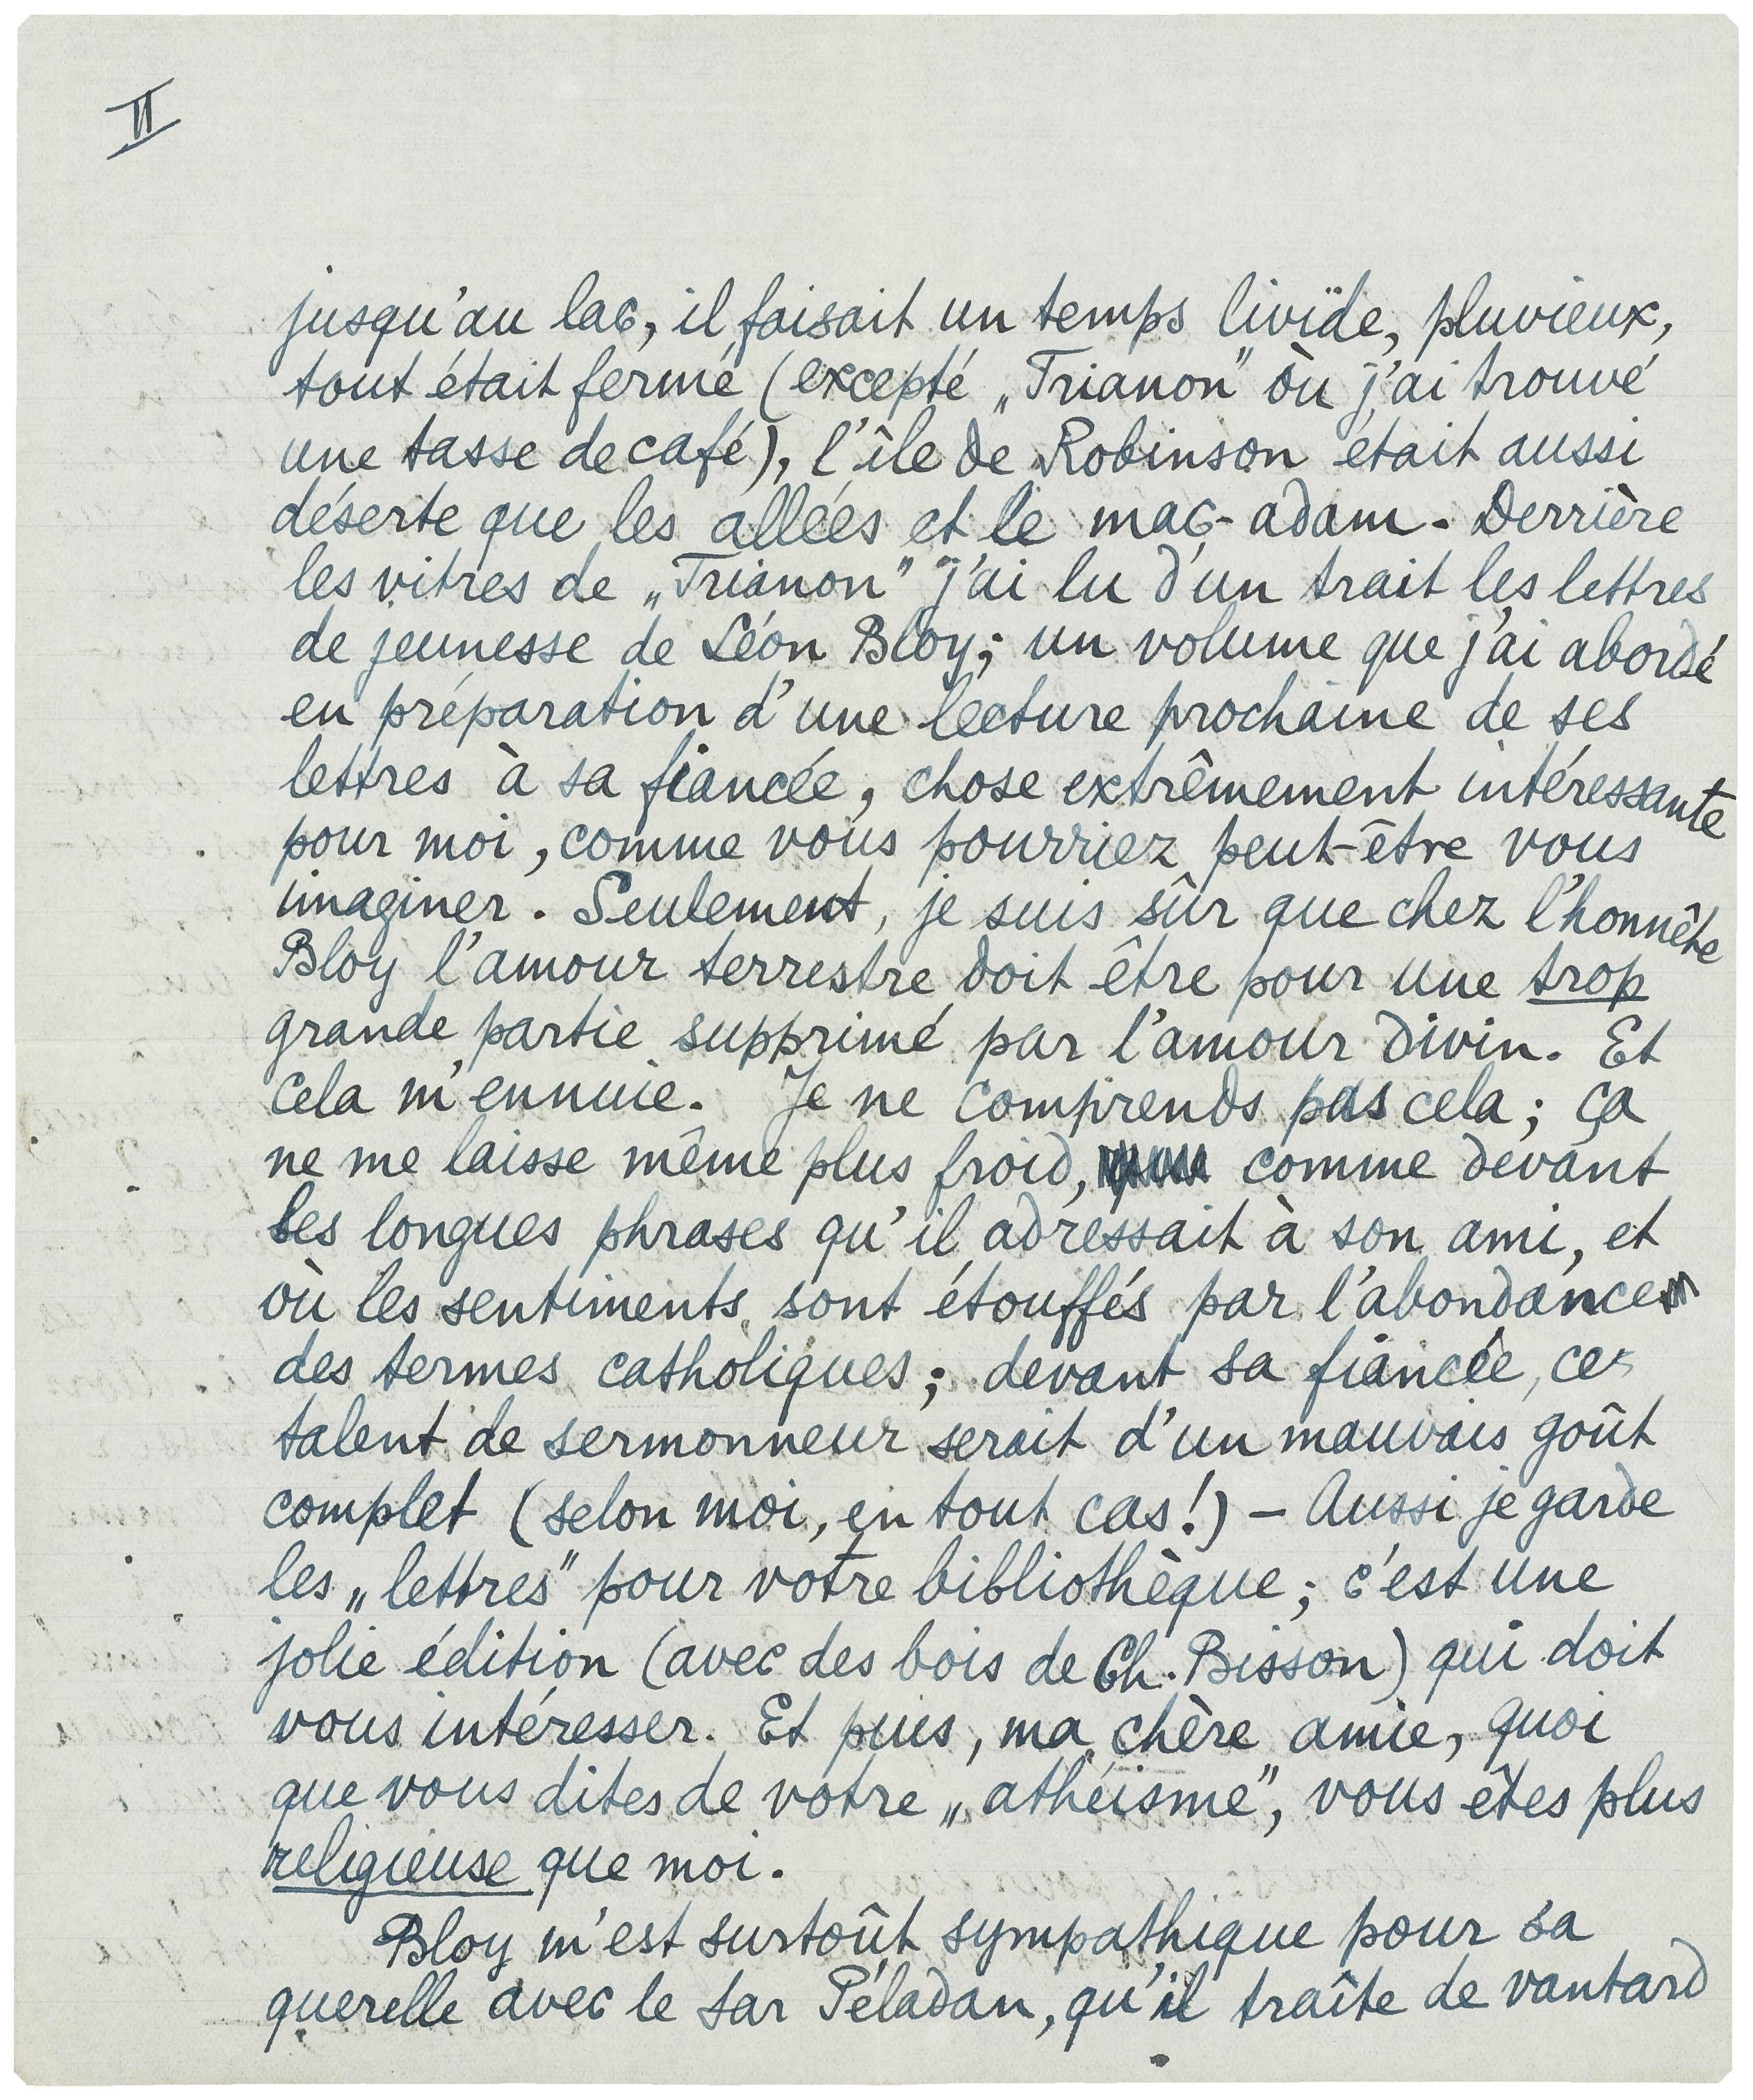 II
jusqu'au lac, il faisait un temps livïde, pluvieux,
tout était fermé (excepté „Trianon” òu j'ai trouvé
une tasse de café), l'île de Robinson était aussi
déserte que les allées et le mac-adam. Derrière
les vitres de „Trianon” j'ai lu d'un trait les lettres
de jeunesse de Léon Bloy; un volume que j'ai abordé
en préparation d'une lecture prochaine de ses
lettres à sa fiancée, chose extrêmement intéressante
pour moi, comme vous pourriez peut-être vous
imaginer. Seulement, je suis sûr que chez l'honnête
Bloy l'amour terrestre doit être pour une trop
grande partie supprimé par l'amour divin. Et
cela m'ennuie. Je ne comprends pas cela; ça
ne me laisse même plus froid, comme devant
les longues phrases qu'il adressait à son ami, et
où les sentiments sont étouffés par l'abondance
des termes catholiques; devant sa fiancée, ce
talent de sermonneur serait d'un mauvais goût
complet (selon moi, en tout cas!) – Aussi je garde
les „lettres” pour votre bibliothèque; c'est une
jolie édition (avec des bois de Ch. Bisson) qui doit
vous intéresser. Et puis, ma chère amie, quoi
que vous dites de votre „athéisme”, vous êtes plus
religieuse que moi.
Bloy m'est surtoût sympathique pour sa
querelle avec le sar Péladan, qu'il traîte de vantard